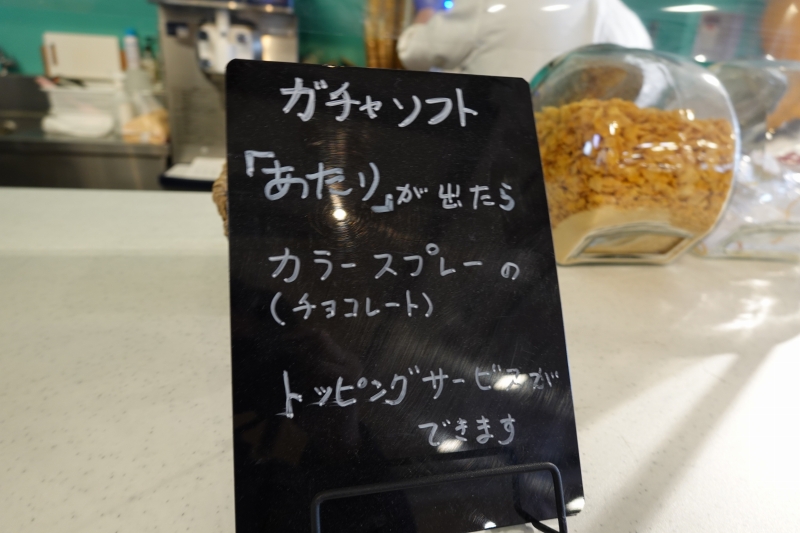 ガチャソフト
「あたり」が出たら
カラースプレーの
(チョコレート)
トッピングサービスが
できます